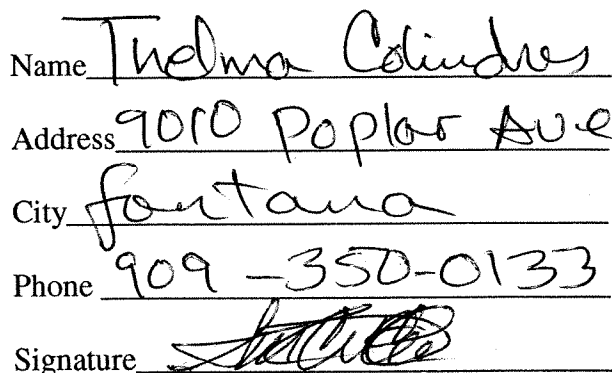 Name Thelma Colindres
Address 9010 Poplar Ave
City Fontana
Phone 909-350-0133
Signature